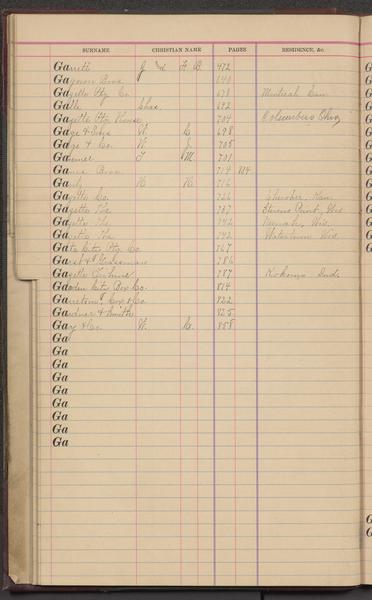 SURNAME CHRISTIAN NAME PAGES RESIDENCE, &c.
Garrett J & H B 472
Gagnon Bros 640
Gazette Ptg Co 678 Montreal Can
Galle Chas. 692
Gazette Ptg House 704 Columbus Ohio
Gage & Sons H. C. 698
Gage & Co. W. J. 705
Ga T M. 701
Ga Bros 714 814
Ga H H 716
Gazette Co. 736
Gazette The 737 Stevens Point, Wis
Gazette The 742 Wis.
Gazette The 742 Watertown Wis
Gate City Ptg Co 767
Ga & 786
Gazette Tribune 787 Kokomo Ind.
Garden City Box Co. 814
Garretson, Cox & Co. 822
Gardner & Smith 825
Gay & Co. W. C. 858
Ga
Ga
Ga
Ga
Ga
Ga
Ga
Ga
Ga